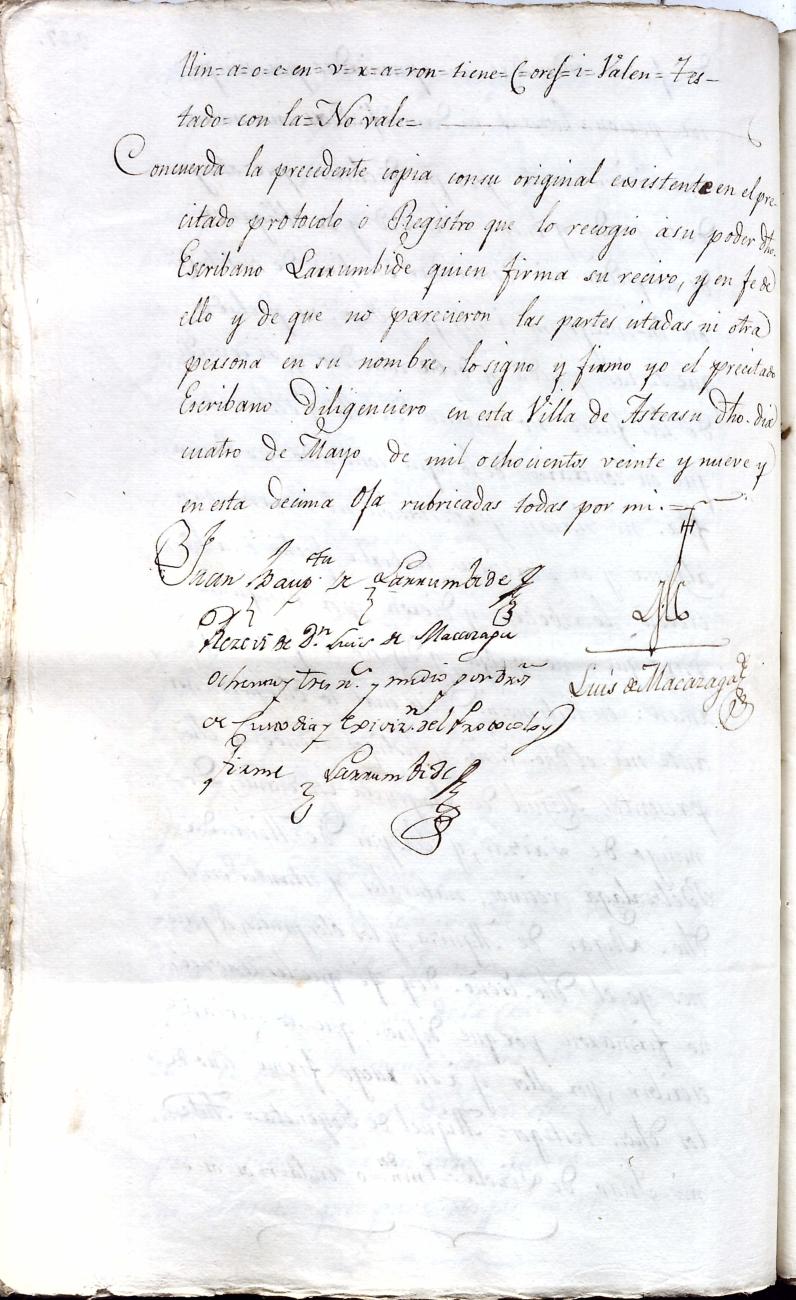 llin=a=o=c=en=v=x=a=ron=tiene=C=ores=i=Valen=Tes-
tado=con la=No vale=
Concuerda la precedente copia consu original existente en el pre-
citado protocolo o Registro que lo recogio asu poder dho.
Escribano Larrumbide quien firma su recivo, y en fe de
ello y de que no parecieron las partes citadas ni otra
persona en su nombre, lo signo y firmo yo el precitado
Escribano Diligenciero en esta Villa de Asteasu dho. dia
cuatro de Mayo de mil ochocientos veinte y nueve y
en esta decima Oja rubricadas todas por mi.=
Juan Baupta. de Larrumbide
Rezevi de Dn. Luis de Macazaga
Luis de Macazaga
ochenta y tres rs. y medio por dros
de Custodia y Exivizn. del Protocolo y
firme Larrumbide